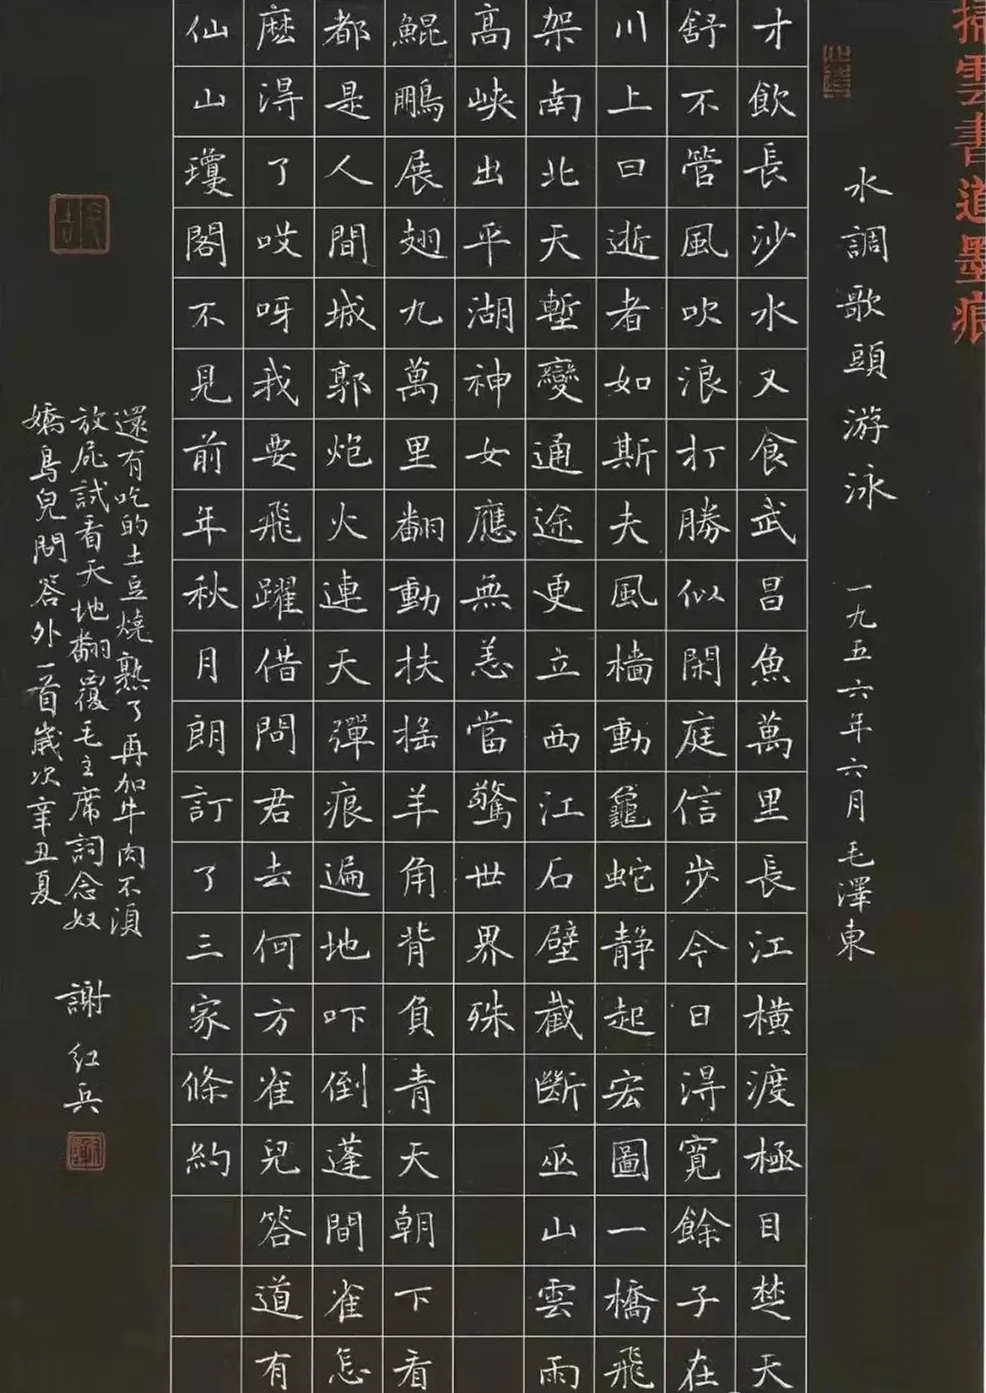 掃雲書道墨痕
水調歌頭 游泳 一九五六年六月毛澤東
才飲長沙水又食武昌魚萬里長江橫渡極目楚天
舒不管風吹浪打勝似閑庭信步今日得寬餘子在
川上曰逝者如斯夫風檣動龜蛇靜起宏圖一橋飛
架南北天塹變通途更立西江石壁截斷巫山雲雨
高峽出平湖神女應無恙當驚世界殊
鯤鵬展翅九萬里翻動扶搖羊角背負青天朝下看
都是人間城郭炮火連天彈痕遍地吓倒蓬間雀怎
麽得了哎呀我要飛躍借問君去何方雀兒答道有
仙山瓊閣不見前年秋月朗訂了三家條約
還有吃的土豆燒熟了再加牛肉不湏
放屁試看天地翻覆毛主席詞念奴
嬌鳥兒問答外一首歲次辛丑夏
謝紅兵